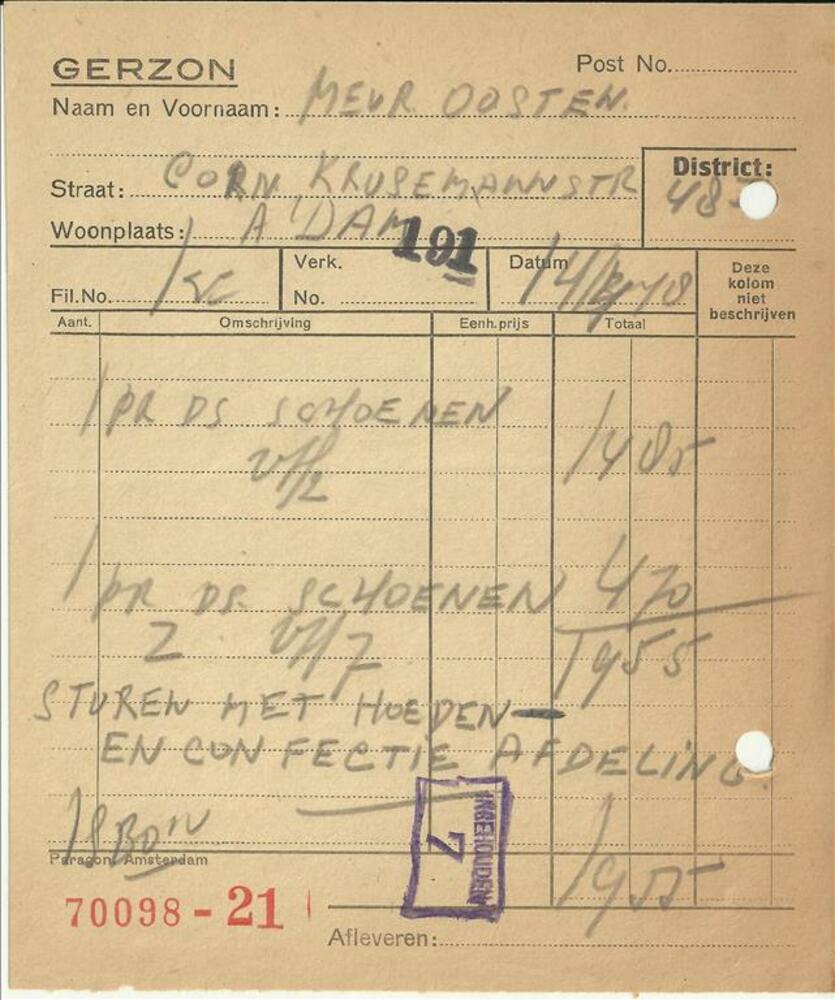 GERZON
Post No.
Naam en Voornaam: MEVR. OOSTEN.
Straat: CORN KRUSEMANNSTR
District: 48
Woonplaats: A'DAM
191
Fil.No.
Verk. No.
Datum
Deze kolom niet beschrijven
Aant. Omschrijving Eenh.prijs Totaal
1 PR DS SCHOENEN
1485
1 PR DS. SCHOENEN 470
1955
STUREN MET HOEDEN —
EN CONFECTIE AFDELING!
INGEHOUDEN
7
Paragon Amsterdam
1955
70098 - 21
Afleveren: